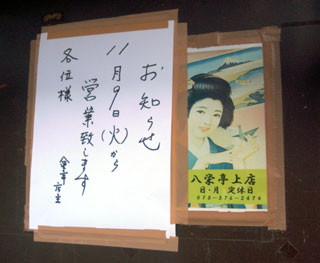 お知らせ
11月9日(火)から
営業致します
各位様
店主
八栄亭上店
日・月 定休日